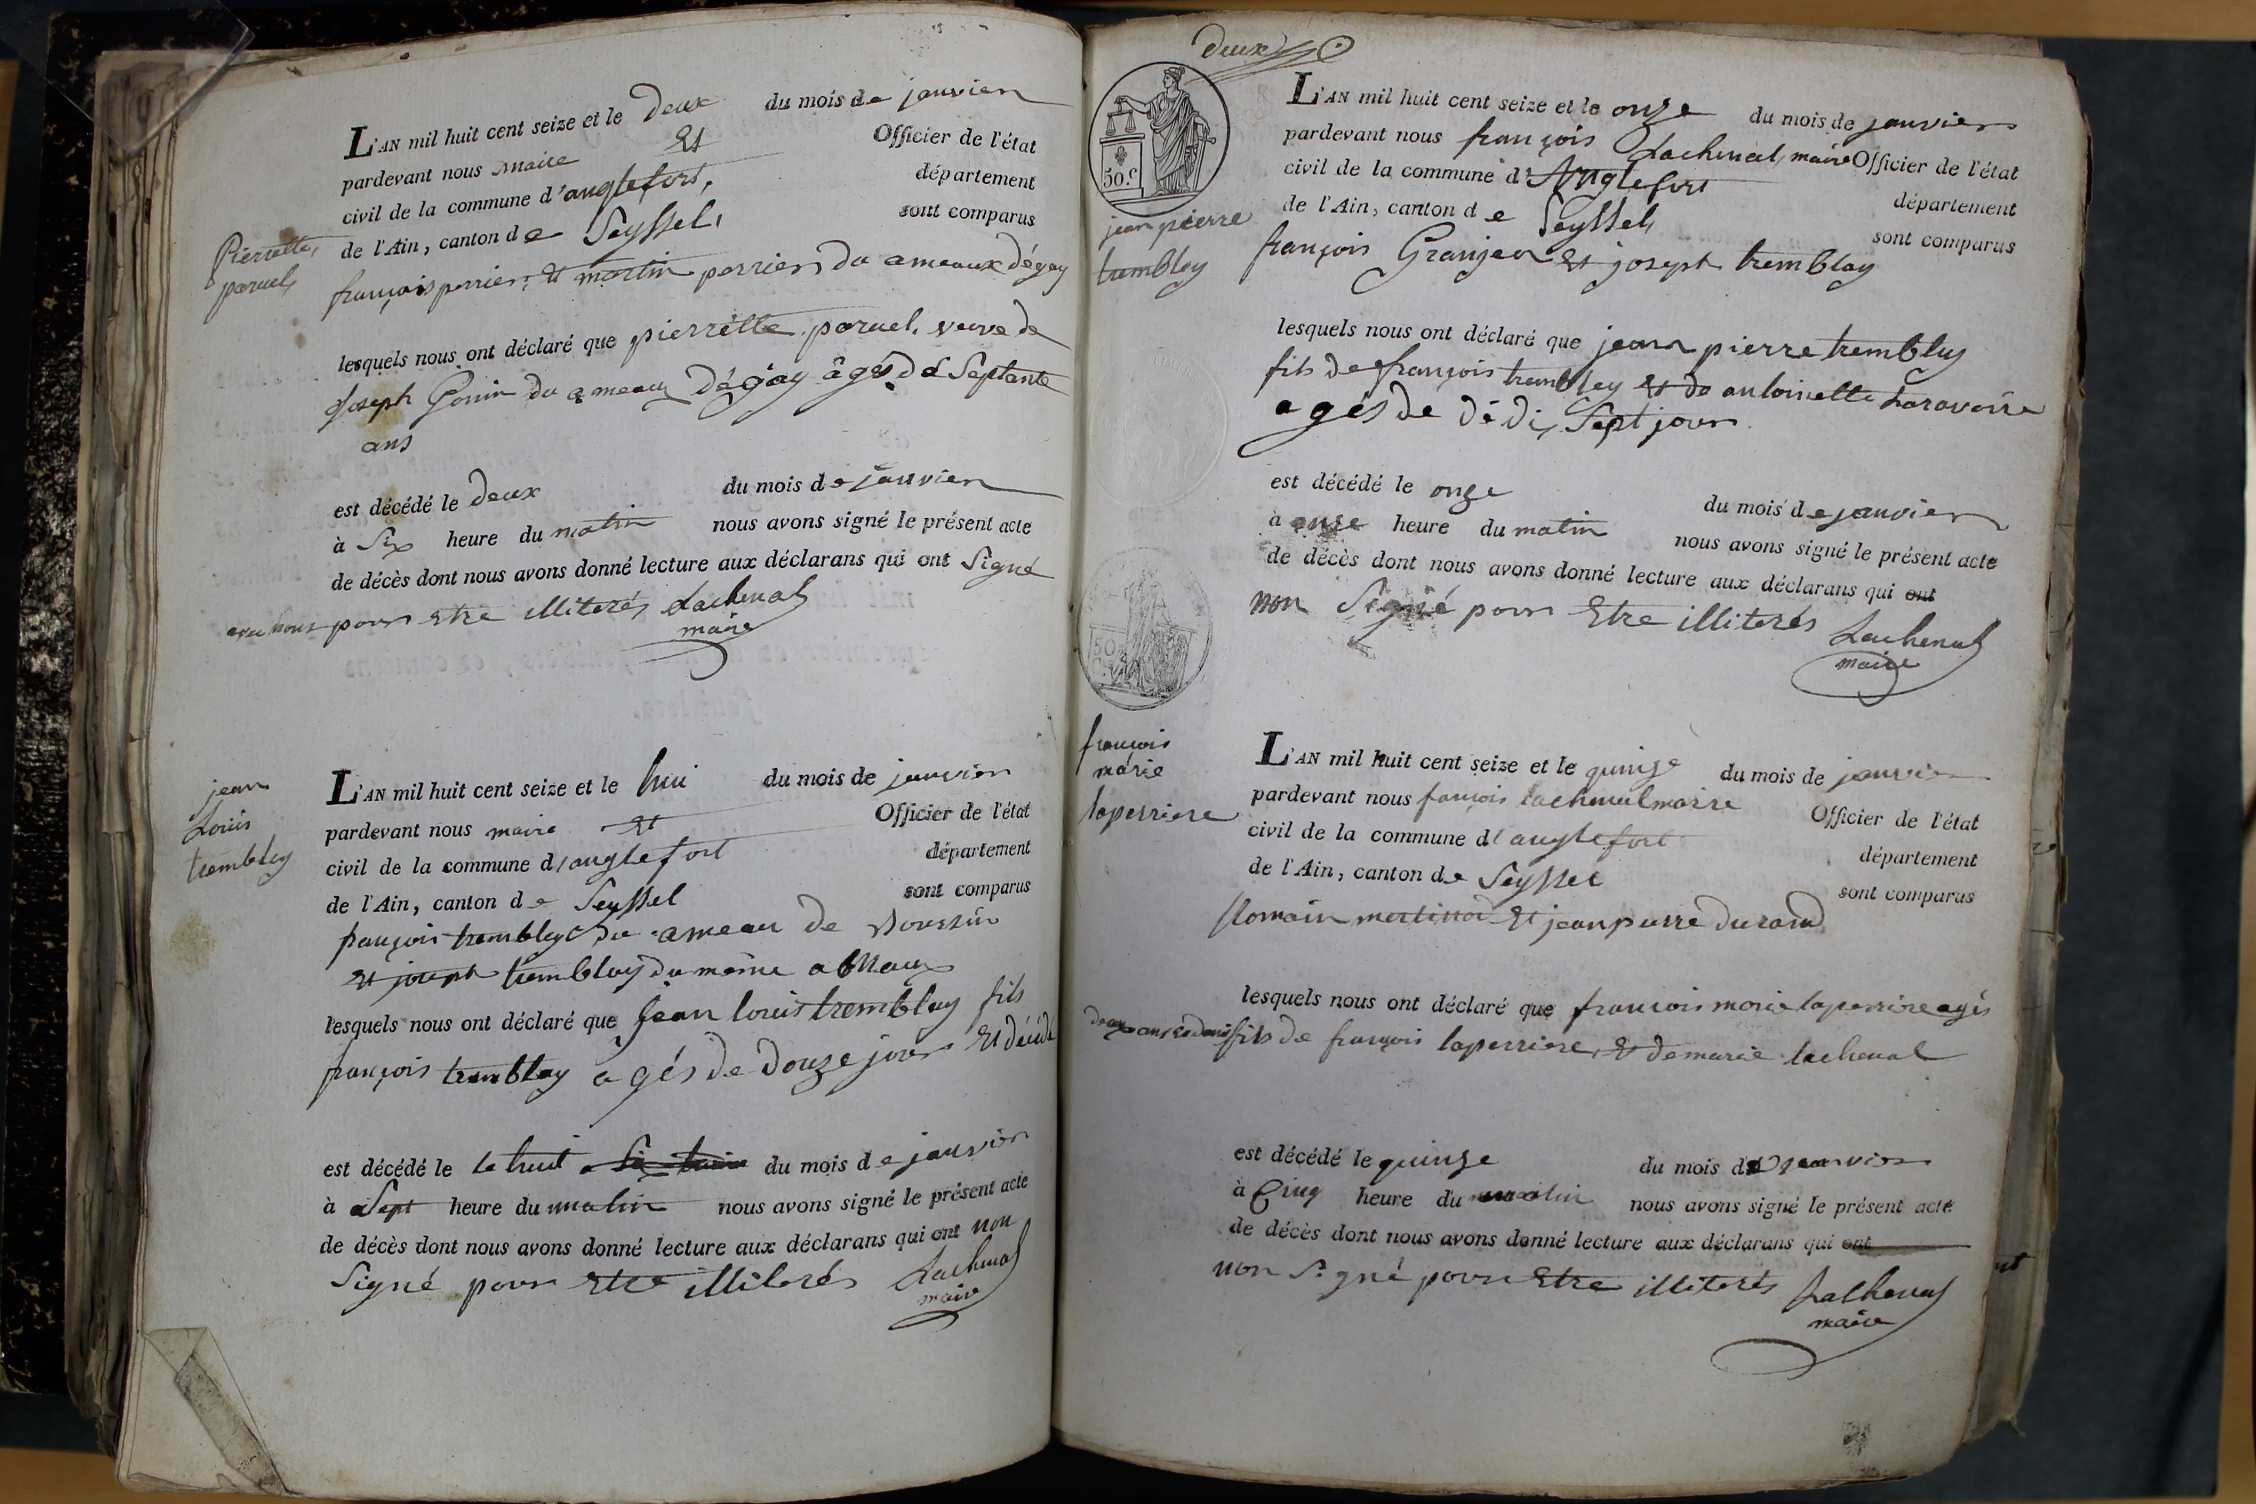 L'AN mil huit cent seize et le deux du mois de janvier
pardevant nous maire Et Officier de l'état
civil de la commune d'anglefort, département
de l'Ain, canton de Seyssel, sont comparus
Pierrette
paruel,
françois perrier, Et martin perrier du ameaux dégay
lesquels nous ont déclaré que pierrette paruel, veuve de
joseph Gonin du ameaux dégay âgés de Septente
ans
est décédé le deux du mois de janvier
à Six heure du matin nous avons signé le présent acte
de décès dont nous avons donné lecture aux déclarans qui ont Signé
avec nous pour Etre illiterés Lachenal
maire
jean
Louis
trembley
L'AN mil huit cent seize et le hui du mois de janvier
pardevant nous maire Et Officier de l'état
civil de la commune d'anglefort département
de l'Ain, canton de Seyssel sont comparus
françois trembley du ameau de
Et joseph tremblay du même
lesquels nous ont déclaré que jean louis tremblay fils
françois tremblay agés de Douze jours Et décédé
est décédé le le huit du mois de janvier
à Sept heure du matin nous avons signé le présent acte
de décès dont nous avons donné lecture aux déclarans qui ont non
Signé pour Etre illiterés Lachenal
maire
deux
50.c
jean pierre
trembley
L'AN mil huit cent seize et le onze du mois de janvier
pardevant nous françois Lachenal, maire Officier de l'état
civil de la commune d'Anglefort département
de l'Ain, canton de Seyssel, sont comparus
françois Granjean Et joseph tremblay
lesquels nous ont déclaré que jean pierre trembley
fils de françois trembley Et de antoinette Laravoire
agés de dé dix Sept jours
est décédé le onze du mois de janvier
à onze heure du matin nous avons signé le présent acte
de décès dont nous avons donné lecture aux déclarans qui ont
non Signé pour Etre illiterés Lachenal
maire
50
françois
marie
laperriere
L'AN mil huit cent seize et le quinze du mois de janvier
pardevant nous françois lachenal maire Officier de l'état
civil de la commune d'anglefort département
de l'Ain, canton de Seyssel sont comparus
Romain martinod Et jean pierre durand
lesquels nous ont déclaré que francois marie laperriere agés
deux ans fils de françois laperriere, Et de marie lachenal
est décédé le quinze du mois de janvier
à Cinq heure du matin nous avons signé le présent acte
de décès dont nous avons donné lecture aux déclarans qui ont
non Signé pour Etre illiterés Lachenal
maire